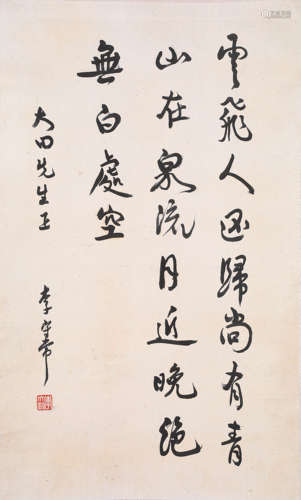 雲飛人不歸尚有青
山在泉流月近晚絶
無白處空
大田先生正
李